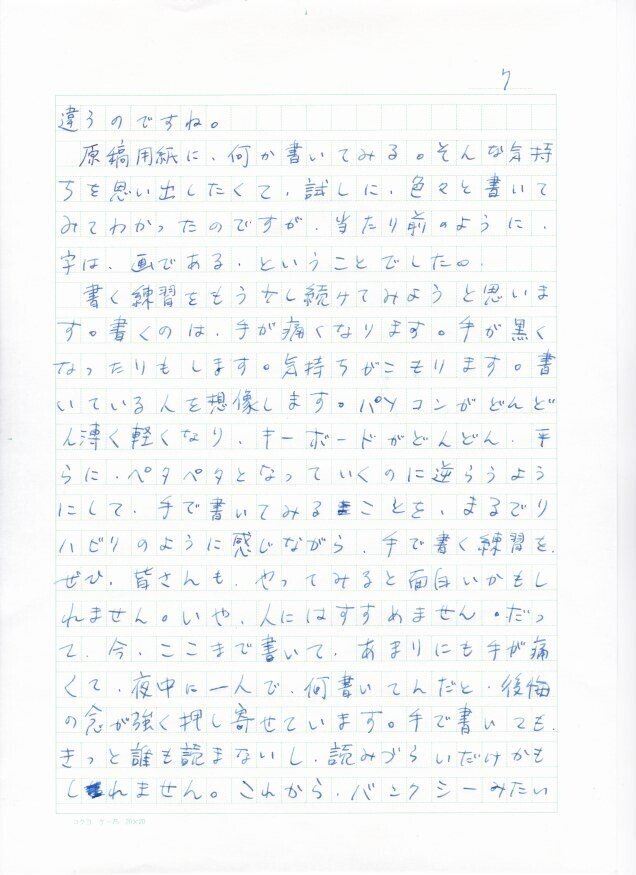 7
違うのですね。
原稿用紙に、何か書いてみる。そんな気持
ちを思い出したくて、試しに、色々と書いて
みてわかったのですが、当たり前のように、
字は、画である、ということでした。
書く練習をもう少し続けてみようと思いま
す。書くのは、手が痛くなります。手が黒く
なったりもします。気持ちがこもります。書
いている人を想像します。パソコンがどんど
ん薄く軽くなり、キーボードがどんどん、平
らに、ペタペタとなっていくのに逆らうよう
にして、手で書いてみることを、まるでリ
ハビリのように感じながら、手で書く練習を、
ぜひ、皆さんも、やってみると面白いかもし
れません。いや、人にはすすめません。だっ
て、今、ここまで書いて、あまりにも手が痛
くて、夜中に一人で、何書いてんだと、後悔
の念が強く押し寄せています。手で書いても、
きっと誰も読まないし、読みづらいだけかも
しれません。これから、バンクシーみたい
コクヨ ケ-75 20×20